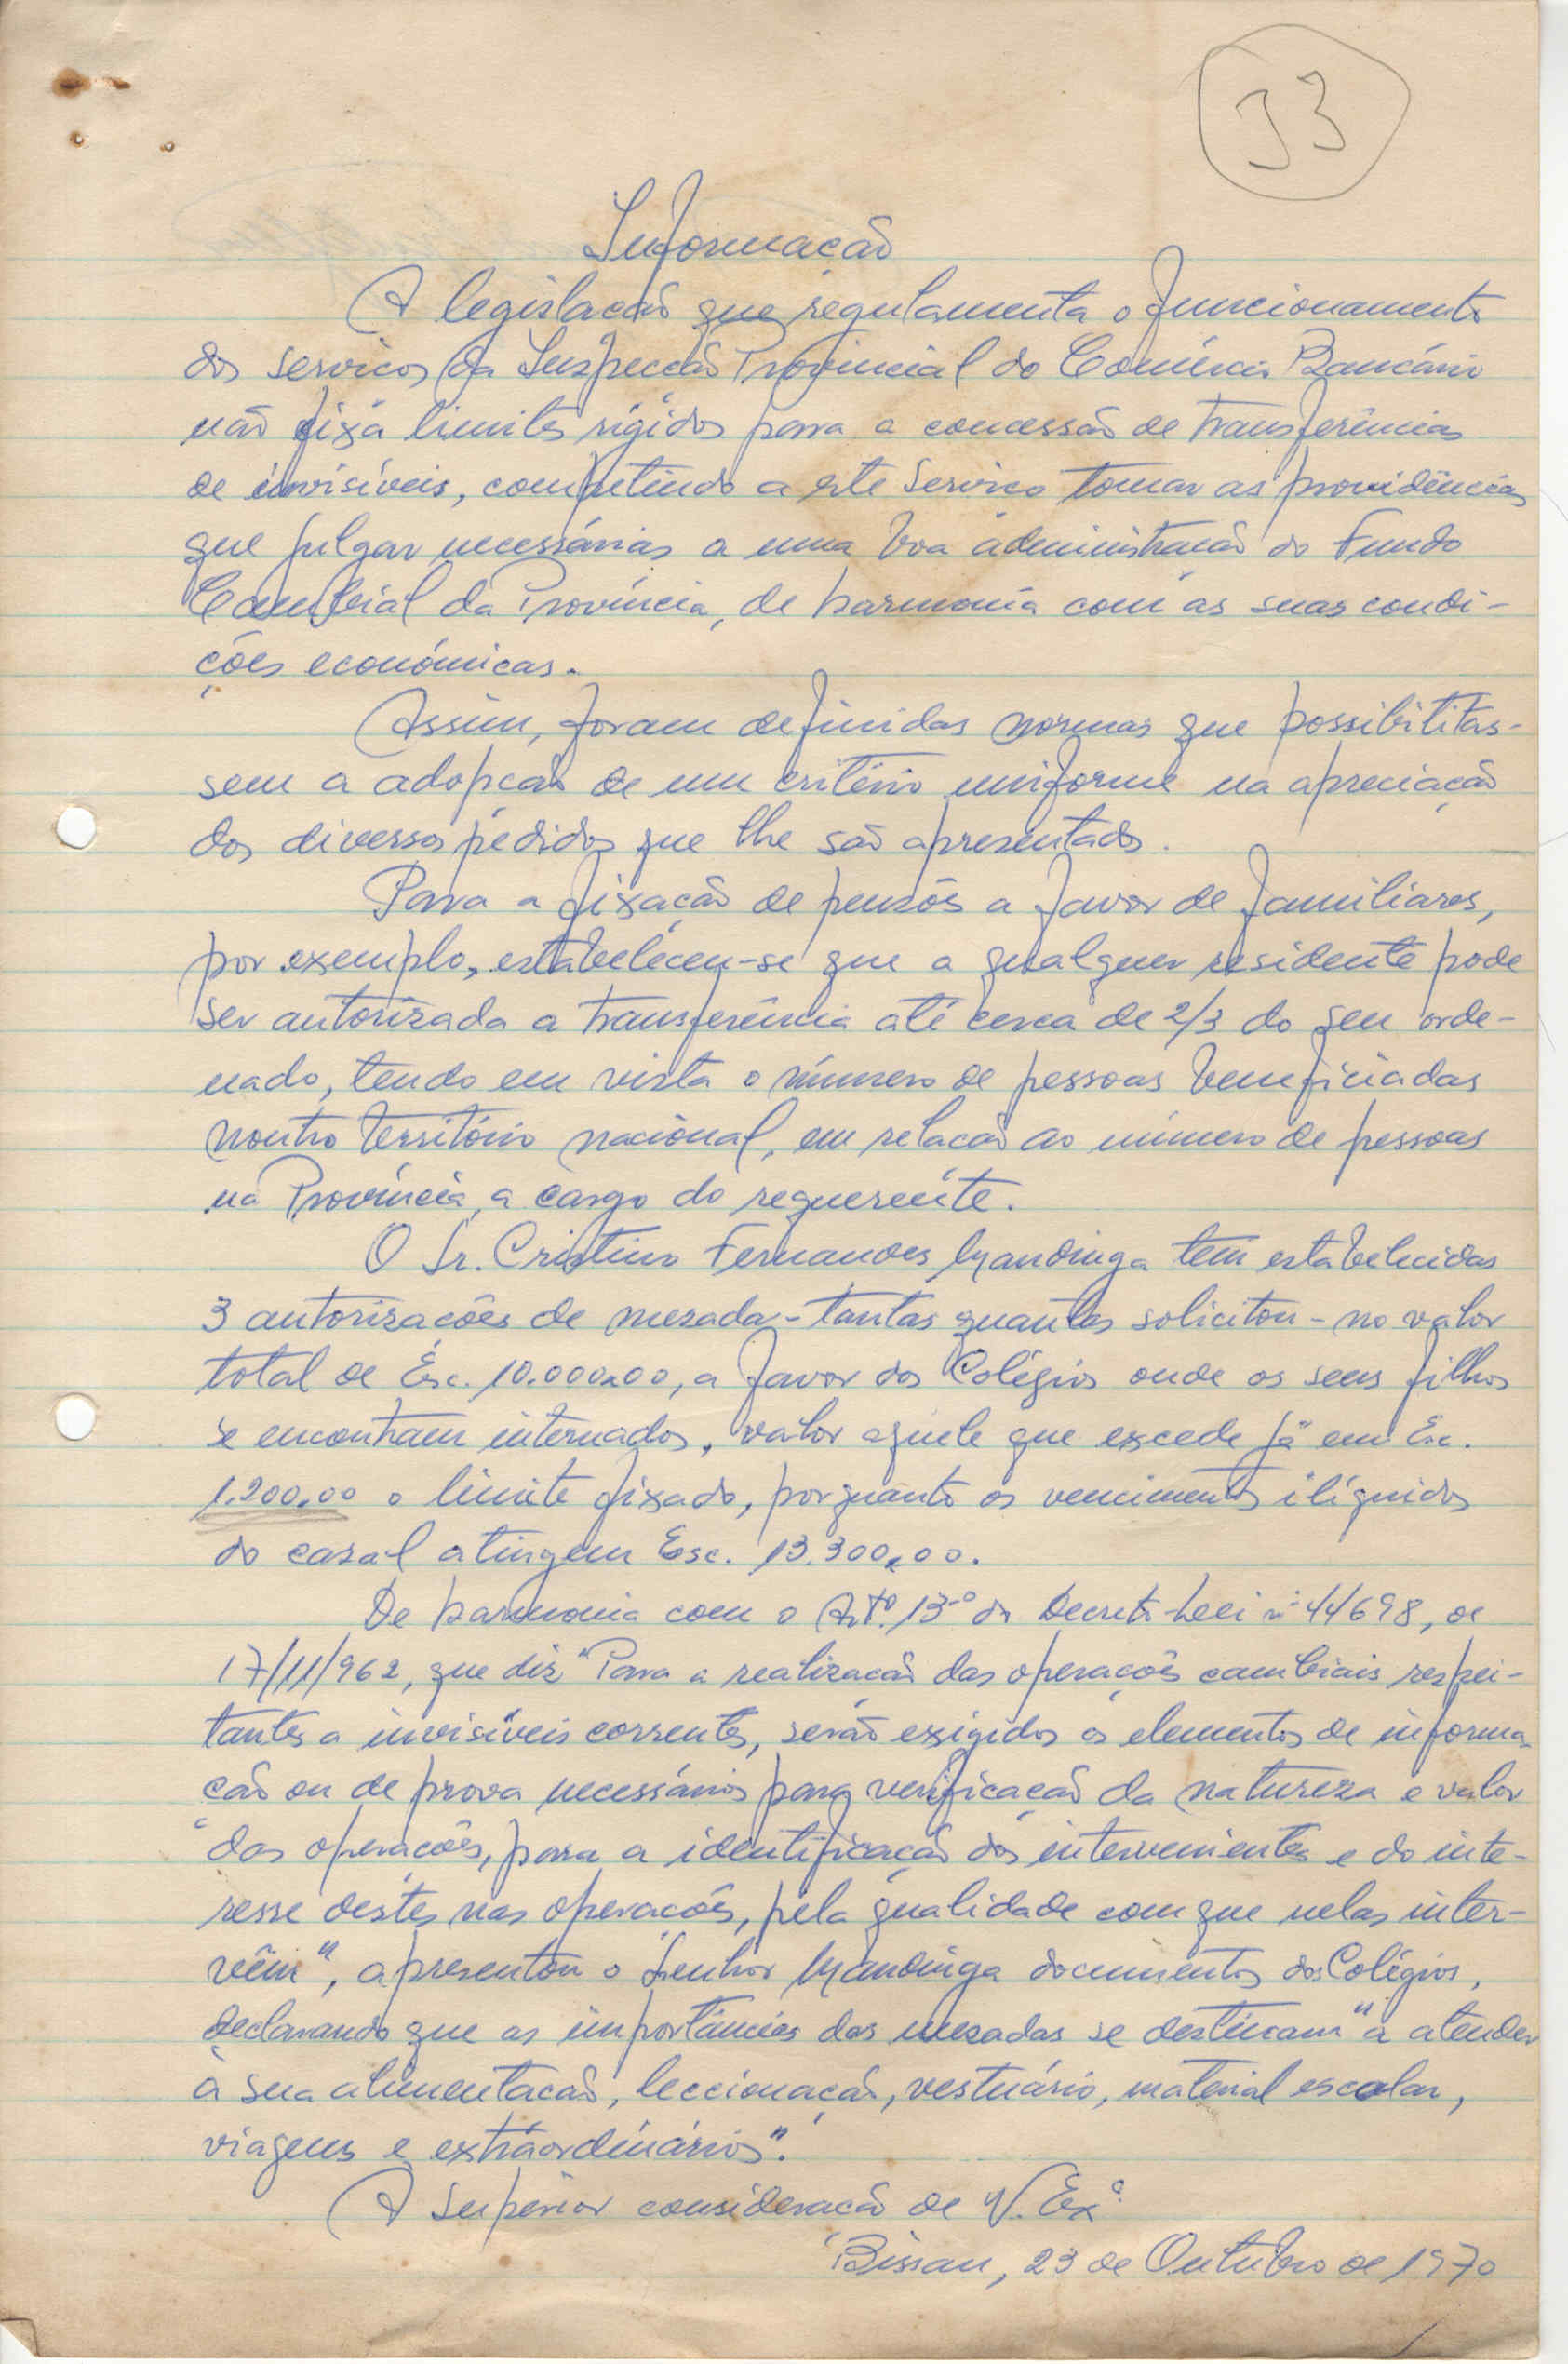 33
Informação
A legislação que regulamenta o funcionamento
dos serviços da Inspecção Provincial do Comércio Bancário
não fixa limites rígidos para a concessão de transferências
de invisíveis, competindo a este Serviço tomar as providências
que julgar necessárias a uma boa administração do Fundo
Cambial da Província, de harmonia com as suas condi-
ções económicas.
Assim, foram definidas normas que possibilitas-
sem a adopção de um critério uniforme na apreciação
dos diversos pedidos que lhe são apresentados.
Para a fixação de pensões a favor de familiares,
por exemplo, estabeleceu-se que a qualquer residente pode
ser autorizada a transferência até cerca de 2/3 do seu orde-
nado, tendo em vista o número de pessoas beneficiadas
noutro território nacional, em relação ao número de pessoas
na Província, a cargo do requerente.
O Sr. Cristino Fernandes Mandinga tem estabelecidas
3 autorizações de mesada - tantas quantas solicitou - no valor
total de Esc. 10.000$00, a favor dos Colégios onde os seus filhos
se encontram internados, valor aquele que excede já em Esc.
1.200$00 o limite fixado, porquanto os vencimentos ilíquidos
do casal atingem Esc. 13.300$00.
De harmonia com o Artº. 13º do Decreto-Lei nº 44698, de
17/11/962, que diz "Para a realização das operações cambiais respei-
tantes a invisíveis correntes, serão exigidos os elementos de informa-
ção ou de prova necessários para verificação da natureza e valor
"das operações, para a identificação dos intervenientes e do inte-
resse destes nas operações, pela qualidade com que nelas inter-
vêm", apresentou o Senhor Mandinga documentos dos Colégios,
declarando que as importâncias das mesadas se destinam "a atender
à sua alimentação, leccionação, vestuário, material escolar,
viagens e extraordinários".
A Superior consideração de V. Exª.
Bissau, 23 de Outubro de 1970